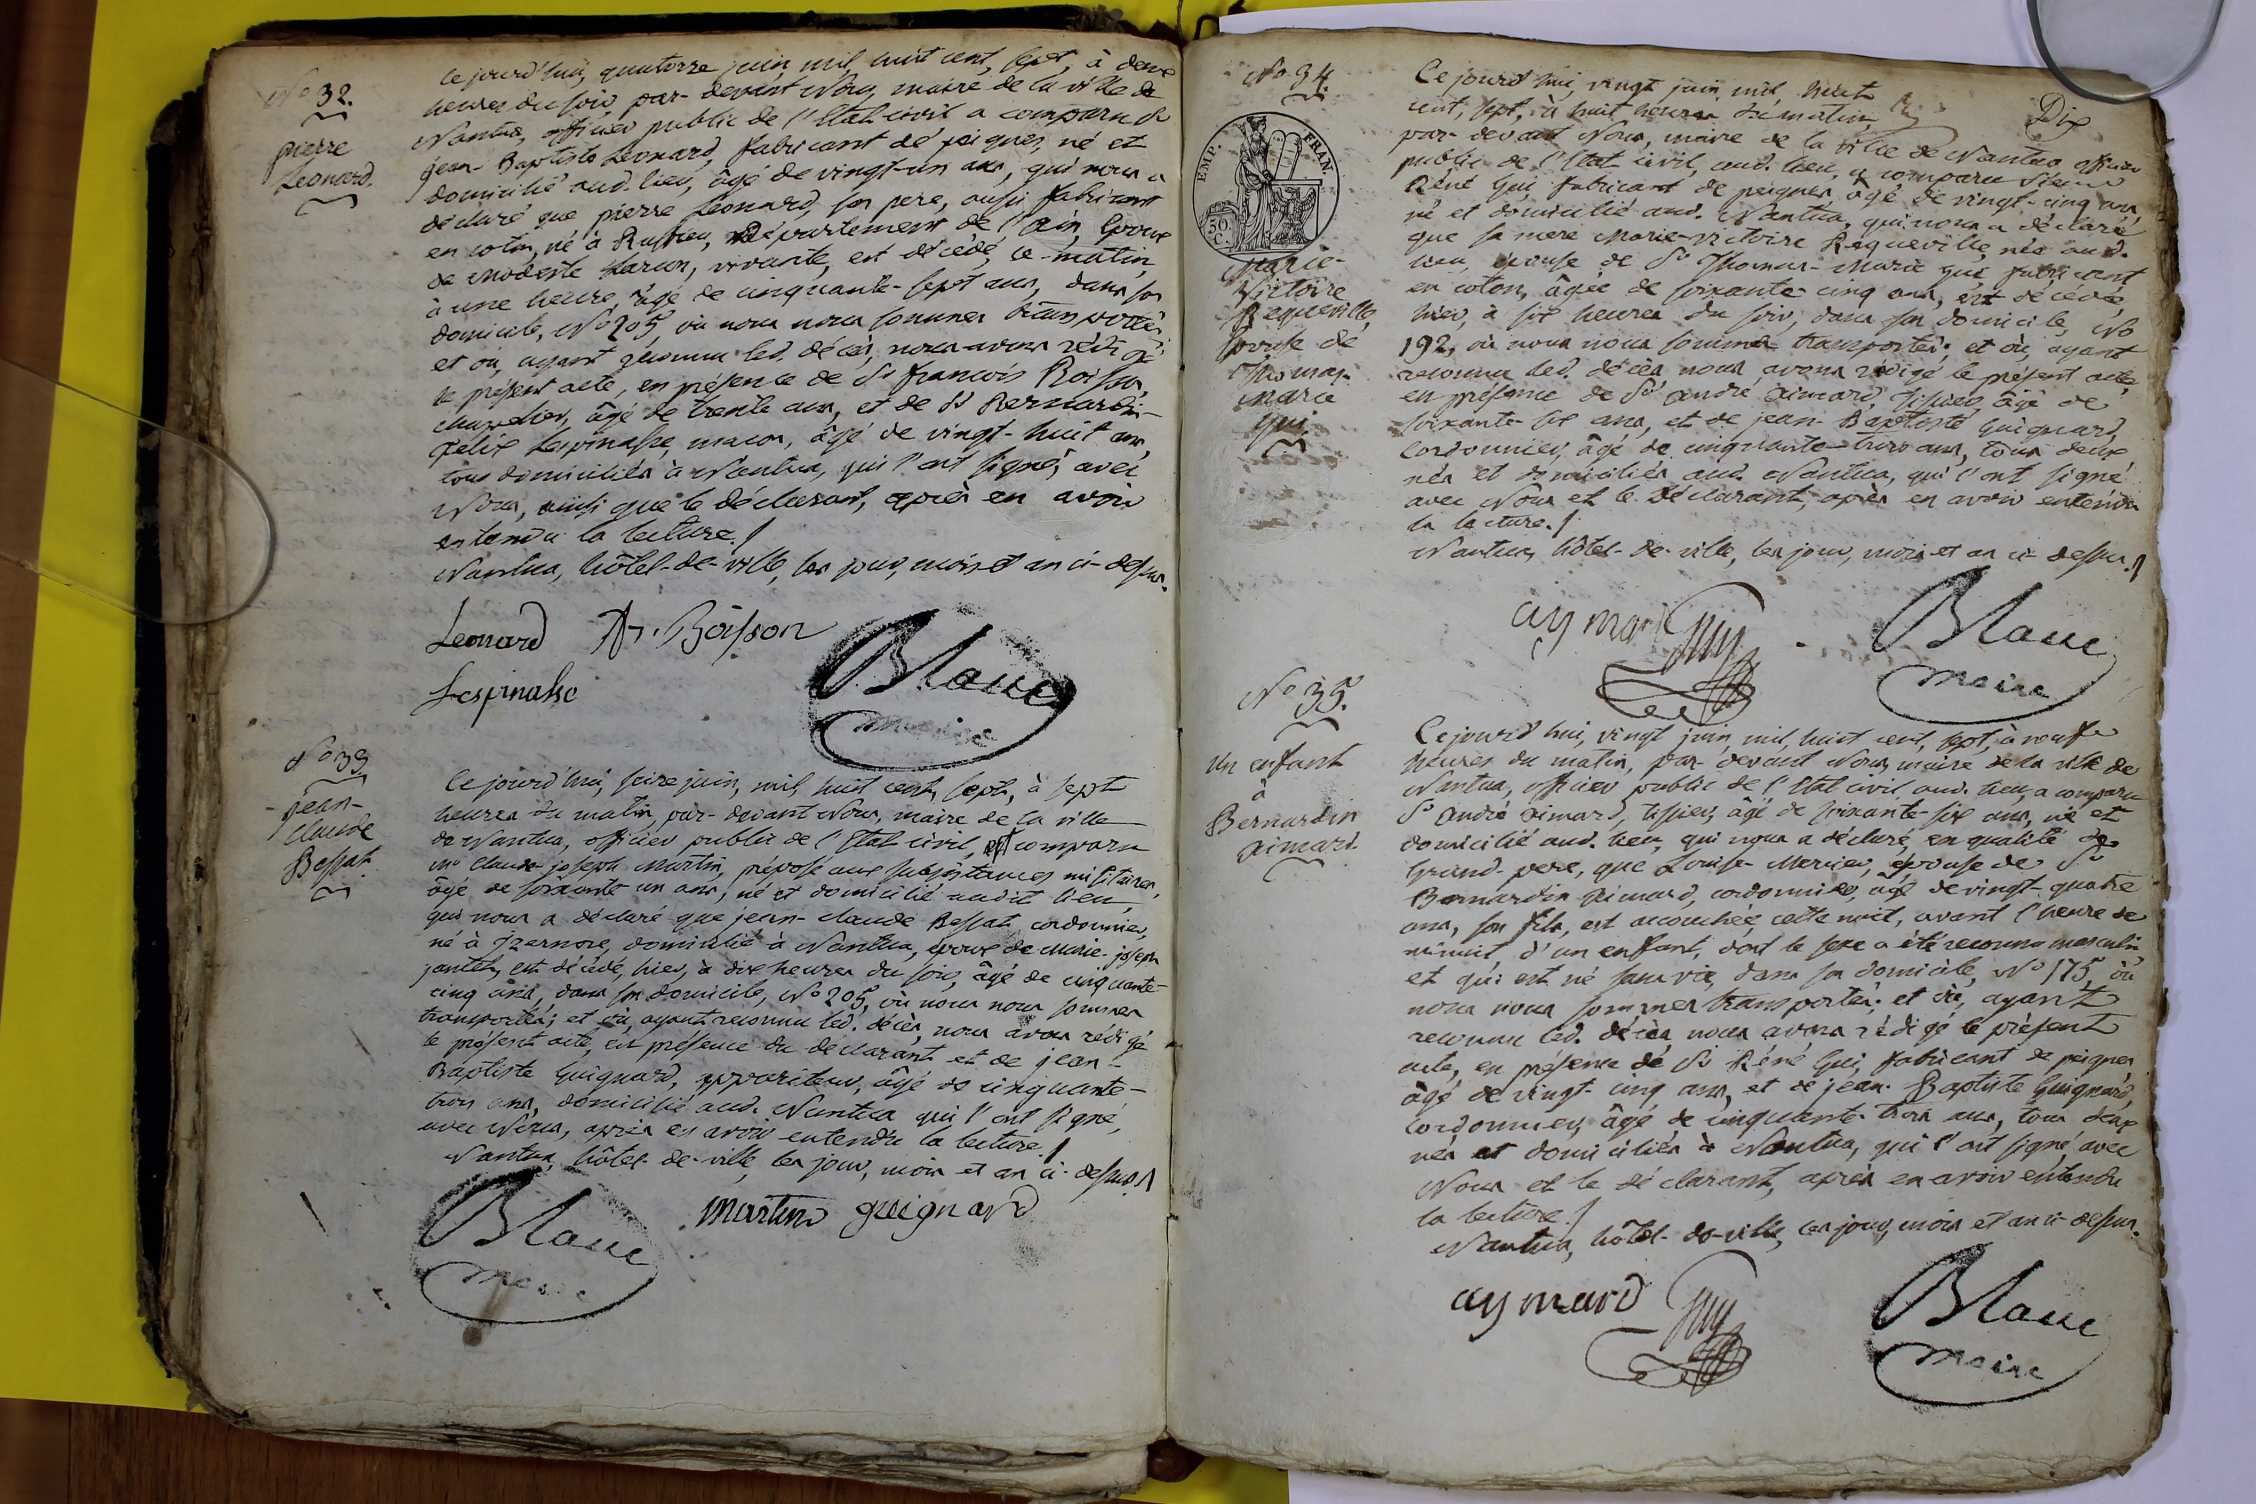 N° 32.
pierre
Leonard.
Ce jourd'hui, quatorze juin mil huit cent, sept, à deux
heures du soir, par-devant Nous, maire de la ville de
Nantua, officier public de l'Etat civil a comparu Sr
jean-Baptiste Leonard, fabricant de peignes, né et
domicilié aud. lieu, âgé de vingt-un ans, qui nous a
déclaré que pierre Leonard, son pere, aussi fabricant
en coton, né à Ruffieu, Département de l'ain, Epoux
de modeste, vivante, est décédé, ce matin,
à une heure, âgé de cinquante-sept ans, dans son
domicile, N° 205, où nous nous sommes transportés;
et où, ayant reconnu led. décès, nous avons rédigé
le présent acte, en présence de Sr françois Boisson,
âgé de trente ans, et de Sr Bernardin-
felix Lespinasse, macon, âgé de vingt-huit ans,
tous domiciliés à Nantua, qui l'ont signé, avec
Nous, ainsi que le déclarant, après en avoir
entendu la lecture./
Nantua, hôtel-de-ville, les jour, mois et an ci-dessus.
Leonard Boisson
Lespinasse
Blanc
maire
N° 33
jean-
claude
Bessat.
Ce jourd'hui, seize juin, mil, huit cent, sept, à sept
heures du matin, par-devant Nous, maire de la ville
de Nantua, officier public de l'Etat civil, est comparu
mr claude joseph Martin, préposé aux subsistances militaires,
âgé de soixante un ans, né et domicilié audit lieu,
qui nous a déclaré que jean-claude Bessat cordonnier,
né à Izernore, domicilié à Nantua, époux de Marie-joseph
jantet, est décédé, hier, à dix heures du soir, âgé de cinquante-
cinq ans, dans son domicile, N° 205, où nous nous sommes
transportés; et où, ayant reconnu led. décès, nous avons rédigé
le présent acte, en présence du déclarant et de jean-
Baptiste Guignard, appariteur, âgé de cinquante-
trois ans, domicilié aud. Nantua qui l'ont signé,
avec Nous, après en avoir entendu la lecture./
Nantua, hôtel-de-ville, les jour, mois et an ci-dessus./
Blanc
maire
Martin guignard
N° 34.
EMP. FRAN.
50.
C.
Marie-
Victoire
Requeville,
Epouse de
Thomas-
Marie
Gui
Dix
Ce jourd'hui, vingt juin, mil, huit
cent, sept, à huit heures du matin,
par-devant Nous, maire de la ville de Nantua officier
public de l'Etat civil, aud. lieu, a comparu Sieur
Réné Gui, fabricant de peignes, âgé de vingt-cinq ans,
né et domicilié aud. Nantua, qui nous a déclaré,
que sa mere Marie-Victoire Requeville, née aud.
lieu, épouse de Sr Thomas-Marie gui, fabricant
en coton, âgée de soixante-cinq ans, est décédée,
hier, à six heures du soir, dans son domicile, N°
192, où nous nous sommes transportés; et où, ayant
reconnu led. décès nous avons rédigé le présent acte,
en présence de Sr andré aimard, tissier, âgé de
soixante-six ans, et de jean-Baptiste Guignard,
Cordonnier, âgé de cinquante-trois ans, tous deux
nés et domiciliés aud. Nantua, qui l'ont signé
avec Nous et le déclarant, après en avoir entendu
la lecture./
Nantua, hôtel-de-ville, les jour, mois et an ci-dessus./
aymard Guy
Blanc
maire
N° 35.
un enfant
à
Bernardin
aimard.
Ce jourd'hui, vingt juin, mil, huit cent, sept, à neuf
heures du matin, par-devant Nous, maire de la ville de
Nantua, officier public de l'Etat civil aud. lieu, a comparu
Sr andré aimard, tissier, âgé de soixante-six ans, né et
domicilié aud. lieu, qui nous a déclaré, en qualité de
Grand-pere, que Louise Mercier, épouse de Sr
Bernardin aimard, cordonnier, âgé de vingt-quatre
ans, son fils, est accouchée, cette nuit, avant l'heure de
minuit, d'un enfant, dont le sexe a été reconnu masculin
et qui est né sans vie, dans son domicile, N° 175, où
nous nous sommes transportés; et où, ayant
reconnu led. décès nous avons rédigé le présent
acte, en présence de Sr Réné Gui, fabricant de peignes,
âgé de vingt-cinq ans, et de jean-Baptiste Guignard,
Cordonnier, âgé de cinquante-trois ans, tous deux
nés et domiciliés à Nantua, qui l'ont signé, avec
Nous et le déclarant, après en avoir entendu
la lecture./
Nantua, hôtel-de-ville, les jour, mois et an ci-dessus.
aymard Guy
Blanc
maire